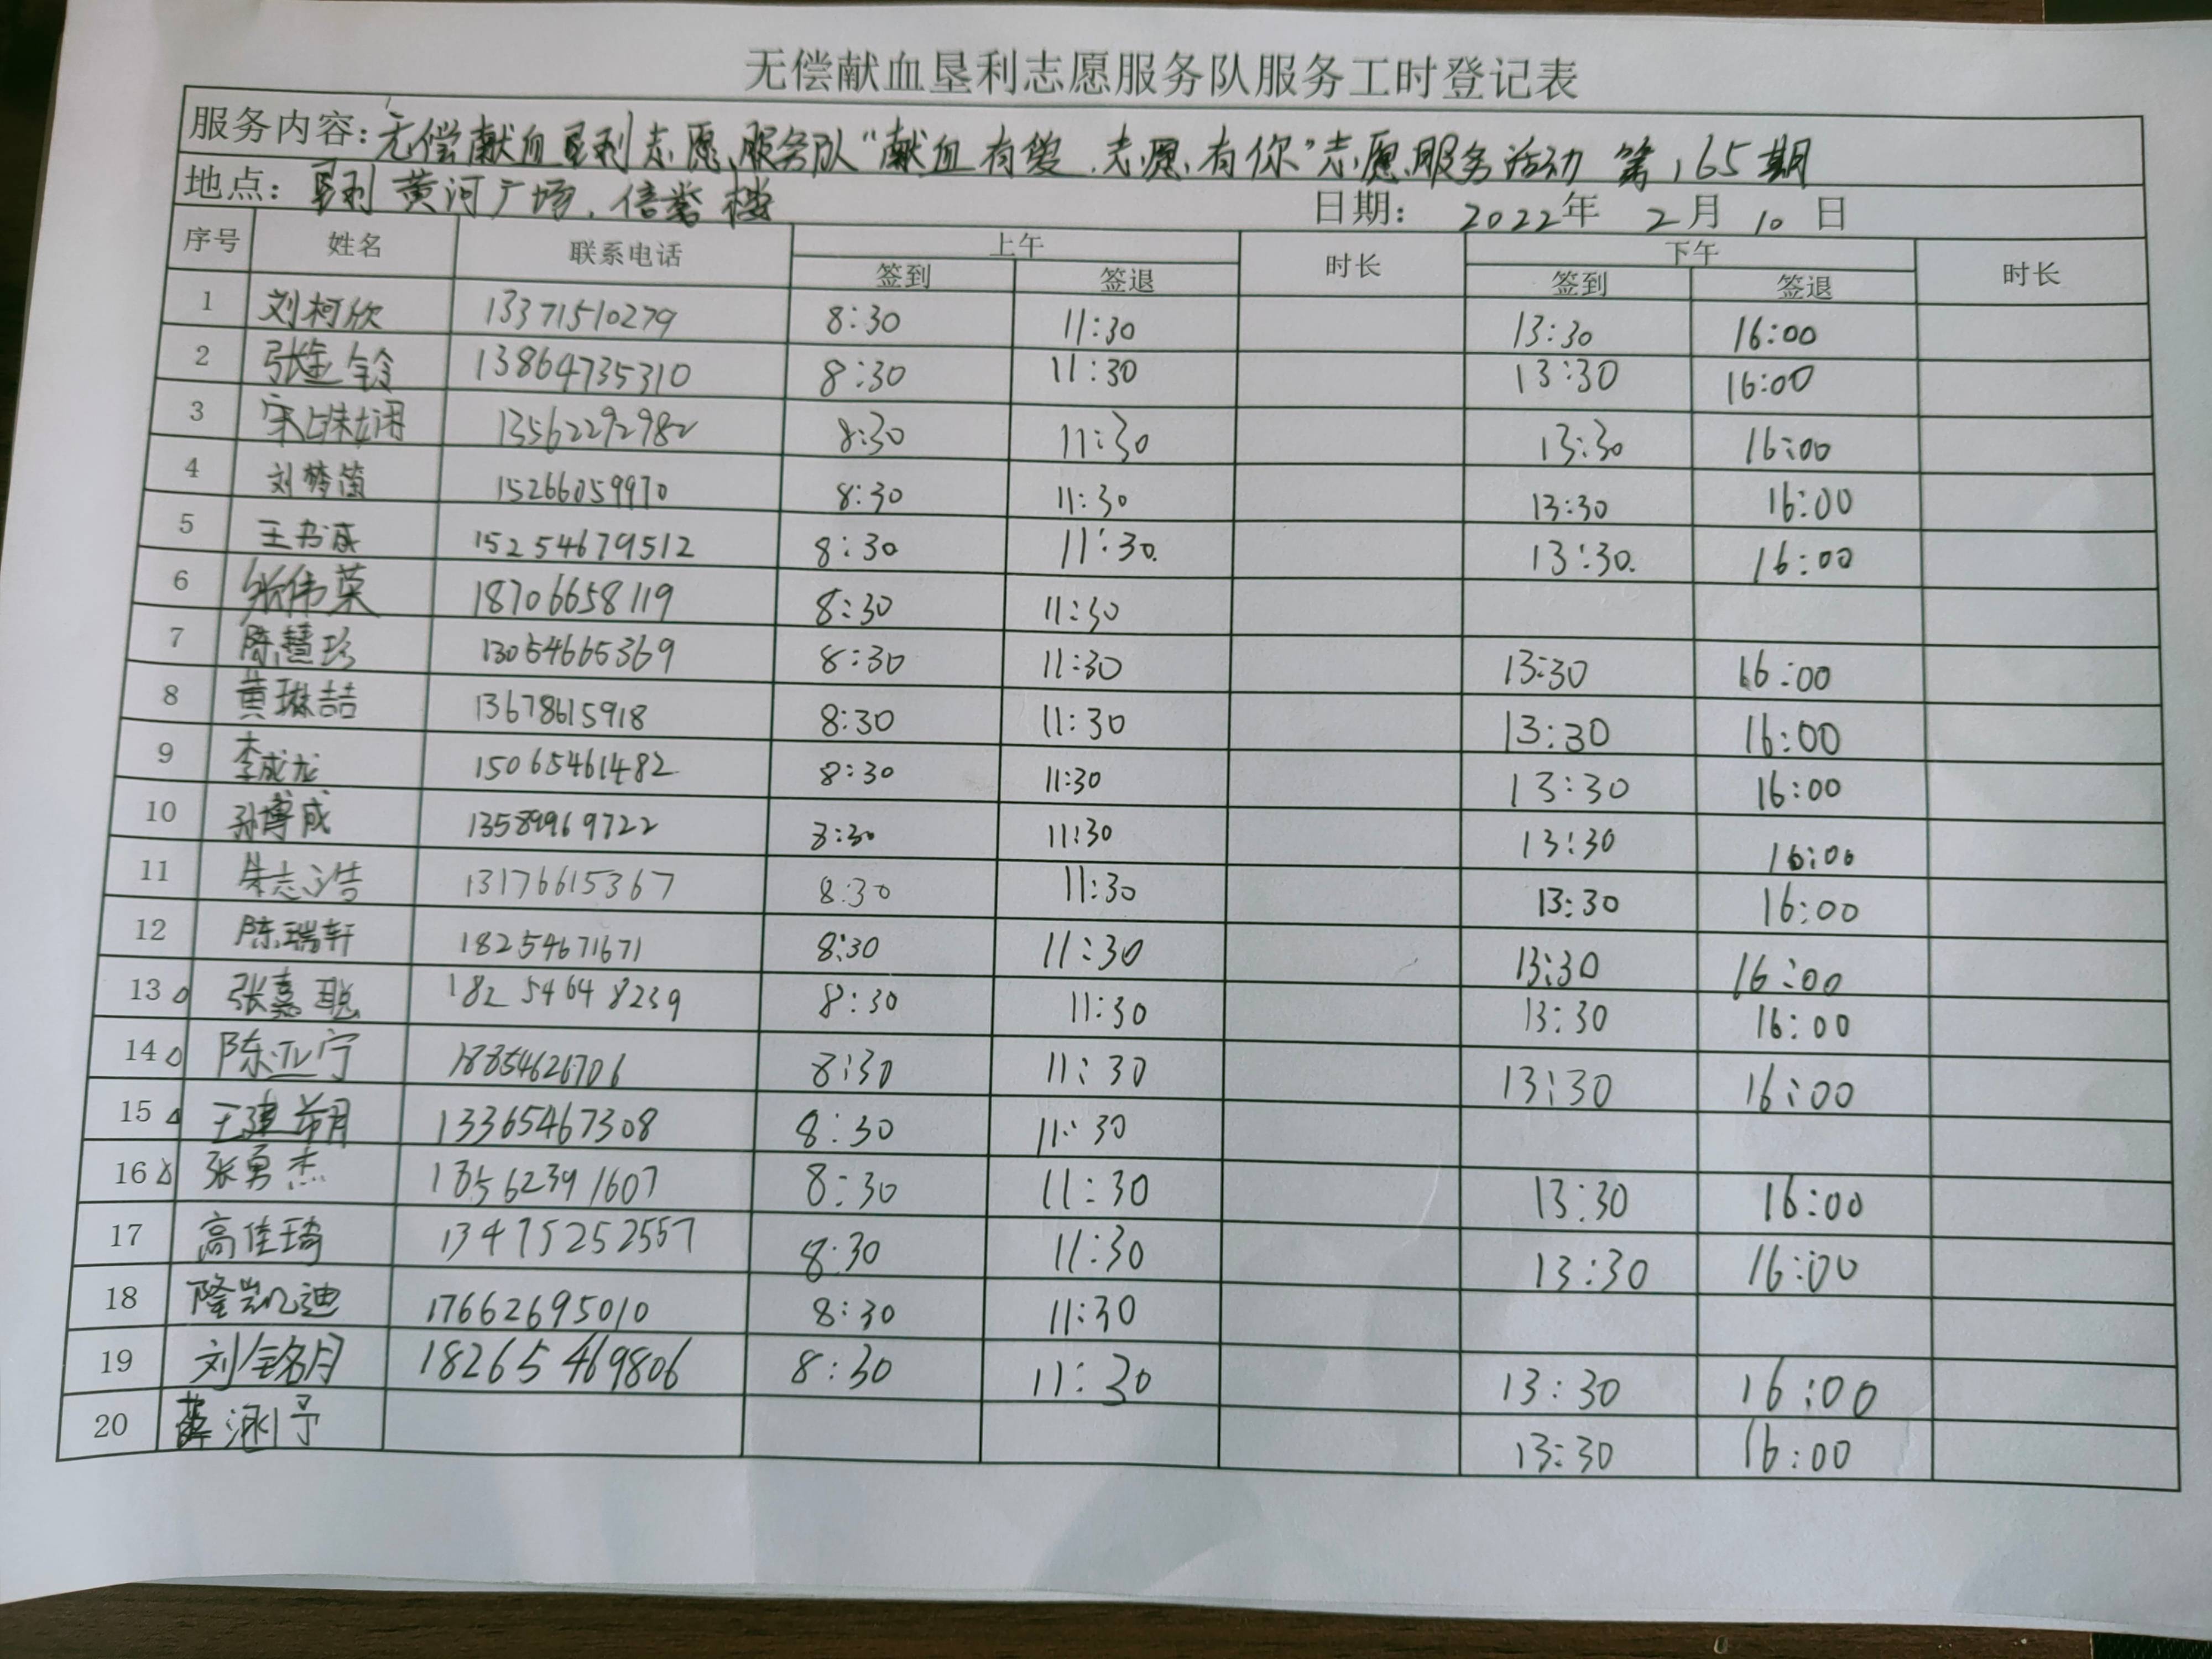 无偿献血垦利志愿服务队服务工时登记表
服务内容：无偿献血垦利志愿服务队“献血有爱.志愿有你”志愿服务活动 第165期
地点：垦利黄河广场.信誉楼 日期：2022年2月10日
序号 姓名 联系电话 上午 时长 下午 时长
签到 签退 签到 签退
1 刘柯欣 13371510279 8:30 11:30 13:30 16:00
2 张金铃 13864735310 8:30 11:30 13:30 16:00
3 13562292982 8:30 11:30 13:30 16:00
4 刘梦笛 15266059970 8:30 11:30 13:30 16:00
5 王书成 15254679512 8:30 11:30. 13:30. 16:00
6 张伟荣 18706658119 8:30 11:30
7 陈慧珍 13054665369 8:30 11:30 13:30 16:00
8 黄琳喆 13678615918 8:30 11:30 13:30 16:00
9 李成龙 15065461482 8:30 11:30 13:30 16:00
10 孙博成 13589969722 8:30 11:30 13:30 16:00
11 朱志浩 13176615367 8:30 11:30 13:30 16:00
12 陈瑞轩 18254671671 8:30 11:30 13:30 16:00
13 张嘉聪 18254648239 8:30 11:30 13:30 16:00
14 陈亚宁 18854621706 8:30 11:30 13:30 16:00
15 王建 13365467308 8:30 11:30
16 张勇杰 13562391607 8:30 11:30 13:30 16:00
17 高佳琦 13475252557 8:30 11:30 13:30 16:00
18 隆凯迪 17662695010 8:30 11:30
19 刘铭月 18265469806 8:30 11:30 13:30 16:00
20 薛涵予 13:30 16:00